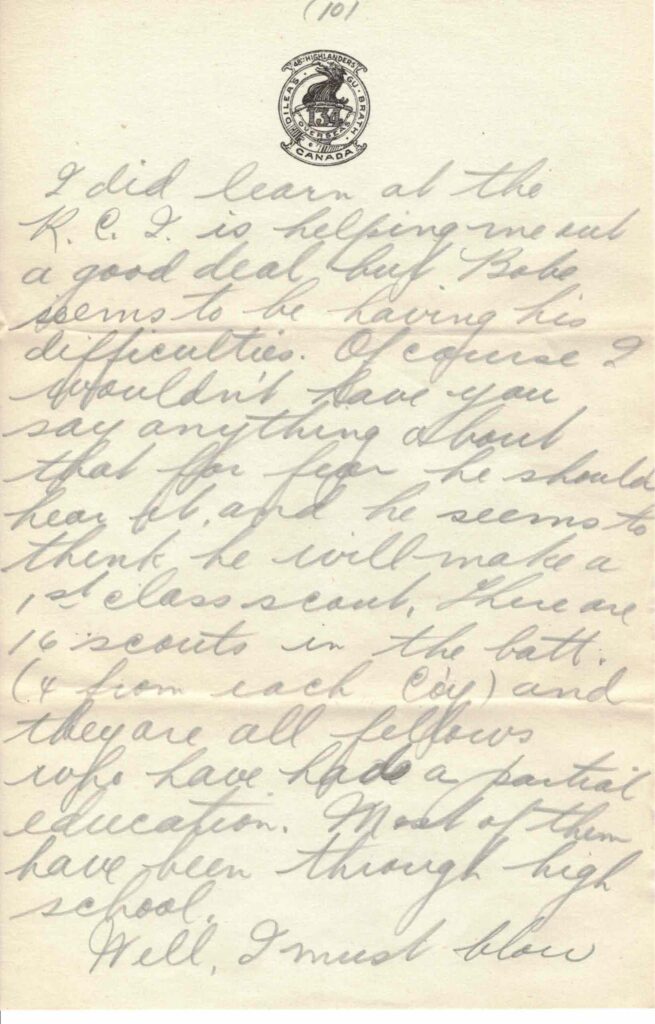 (10)
48TH HIGHLANDERS
DILEAS GU BRATH
134
OVERSEAS
CANADA
I did learn at the
K. C. I. is helping me out
a good deal but Bobe
seems to be having his
difficulties. Of course I
wouldn't have you
say anything about
that for fear he should
hear it, and he seems to
think he will make a
1st class scout. There are
16 scouts in the batt.
(4 from each Co'y) and
they are all fellows
who have had a partial
education. Most of them
have been through high
school.
Well, I must blow